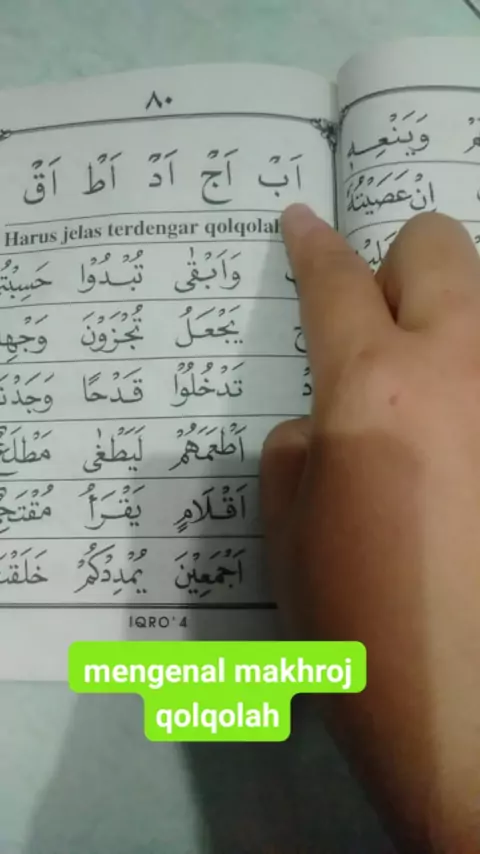 ٨٠
اَبْ اَجْ اَدْ اَطْ اَقْ
Harus jelas terdengar qolqolah
وَاَبْقٰى تُبْدُوْا
يَجْعَلُ تُجْزَوْنَ
تَدْخُلُوْا قَدْحًا
اَطْعَمَهُمْ لَيَطْغٰى
اَقْلَامٍ يَقْرَأُ
اَجْمَعِيْنَ يُمْدِدْكُمْ
IQRO' 4
وَيَنْعِهٖ
اِنْ عَصَيْتُهٗ
mengenal makhroj
qolqolah